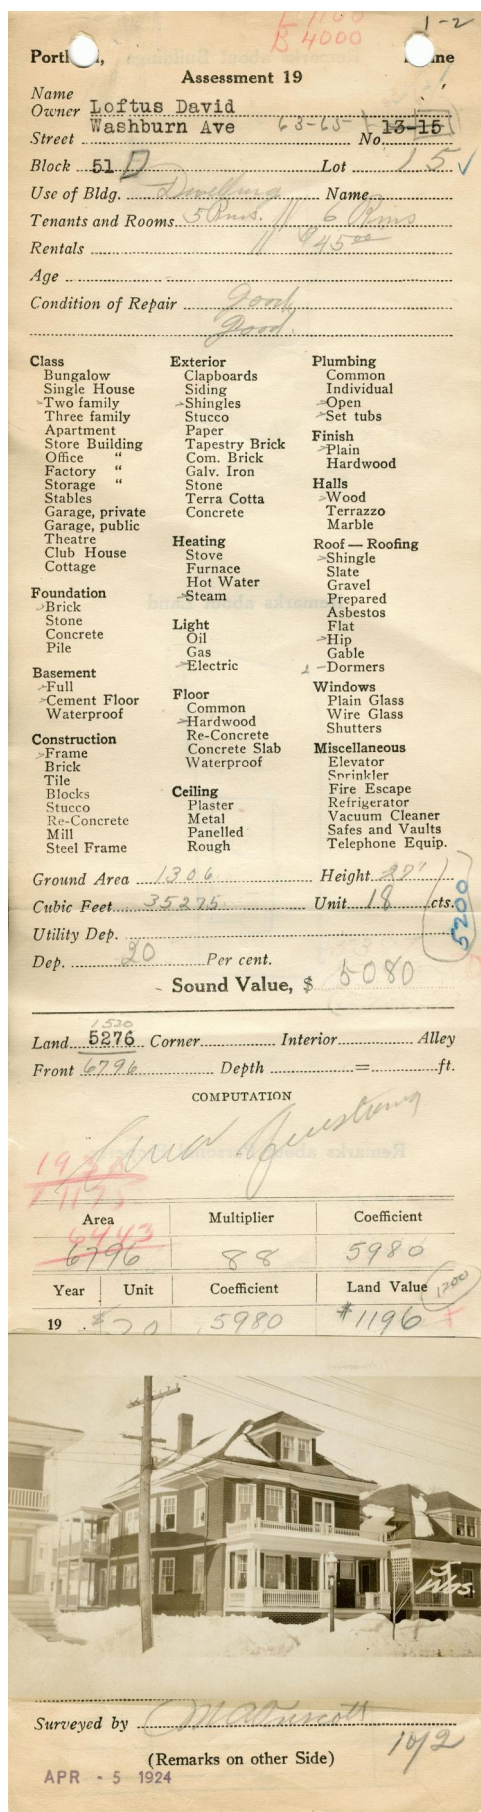 L 1100
B 4000
1-2
Portl , ine
Assessment 19
Name
Owner Loftus David
Washburn Ave 63-65
Street No. 13-15
Block 51 D Lot 15
Use of Bldg. Dwelling Name
Tenants and Rooms 5 Rms. // 6 Rms
Rentals $45.00
Age
Condition of Repair good,
good.
Class
Bungalow
Single House
Two family
Three family
Apartment
Store Building
Office "
Factory "
Storage "
Stables
Garage, private
Garage, public
Theatre
Club House
Cottage
Foundation
Brick
Stone
Concrete
Pile
Basement
Full
Cement Floor
Waterproof
Construction
Frame
Brick
Tile
Blocks
Stucco
Re-Concrete
Mill
Steel Frame
Exterior
Clapboards
Siding
Shingles
Stucco
Paper
Tapestry Brick
Com. Brick
Galv. Iron
Stone
Terra Cotta
Concrete
Heating
Stove
Furnace
Hot Water
Steam
Light
Oil
Gas
Electric
Floor
Common
Hardwood
Re-Concrete
Concrete Slab
Waterproof
Ceiling
Plaster
Metal
Panelled
Rough
Plumbing
Common
Individual
Open
Set tubs
Finish
Plain
Hardwood
Halls
Wood
Terrazzo
Marble
Roof — Roofing
Shingle
Slate
Gravel
Prepared
Asbestos
Flat
Hip
Gable
Dormers
Windows
Plain Glass
Wire Glass
Shutters
Miscellaneous
Elevator
Sprinkler
Fire Escape
Refrigerator
Vacuum Cleaner
Safes and Vaults
Telephone Equip.
Ground Area 1306 Height 27'
Cubic Feet 35275 Unit 18 cts.
5200
Utility Dep.
Dep. 20 Per cent.
Sound Value, $ 5080
1520
Land 5276 Corner Interior Alley
Front 6796 Depth = ft.
COMPUTATION
Area Multiplier Coefficient
6443
6796 88 5980
Year Unit Coefficient Land Value 1200
19 $20 5980 $1196
Surveyed by
(Remarks on other Side)
APR - 5 1924